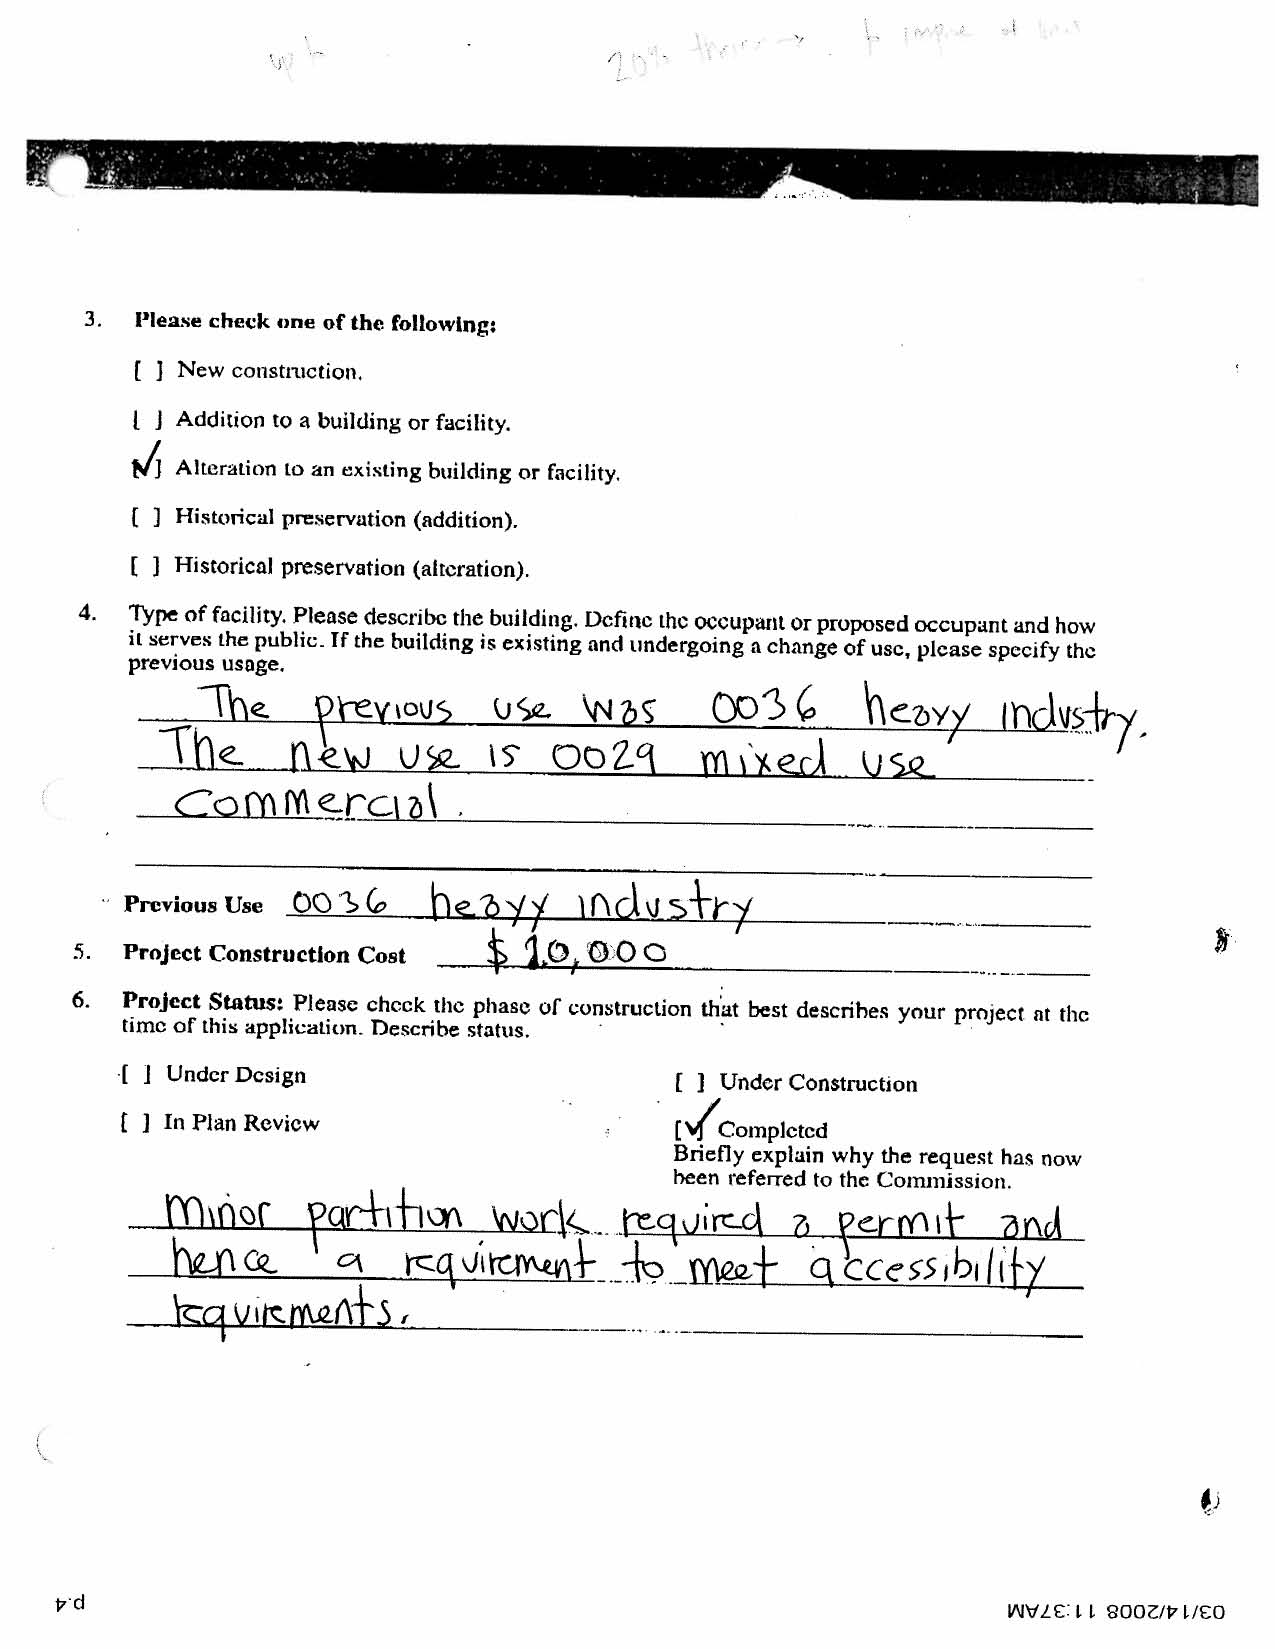 up to
20%
3. Please check one of the following:
[ ] New construction.
[ ] Addition to a building or facility.
[✓] Alteration to an existing building or facility.
[ ] Historical preservation (addition).
[ ] Historical preservation (alteration).
4. Type of facility. Please describe the building. Define the occupant or proposed occupant and how
it serves the public. If the building is existing and undergoing a change of use, please specify the
previous usage.
The previous use was 0036 heavy industry.
The new use is 0029 mixed use
commercial.
Previous Use 0036 heavy industry
5. Project Construction Cost $10,000
6. Project Status: Please check the phase of construction that best describes your project at the
time of this application. Describe status.
[ ] Under Design
[ ] Under Construction
[ ] In Plan Review
[✓] Completed
Briefly explain why the request has now
been referred to the Commission.
Minor partition work required a permit and
hence a requirement to meet accessibility
requirements.
p.4
03/14/2008 11:37AM